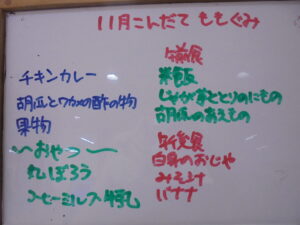 11月こんだて ももぐみ
チキンカレー
胡瓜とワカメの酢の物
果物
〜おやつ〜
丸ぼうろ
コーヒーミルク 牛乳
午前食
米飯
じゃが芋ととりのにもの
胡瓜のあえもの
午後食
白身のおじや
みそ汁
バナナ